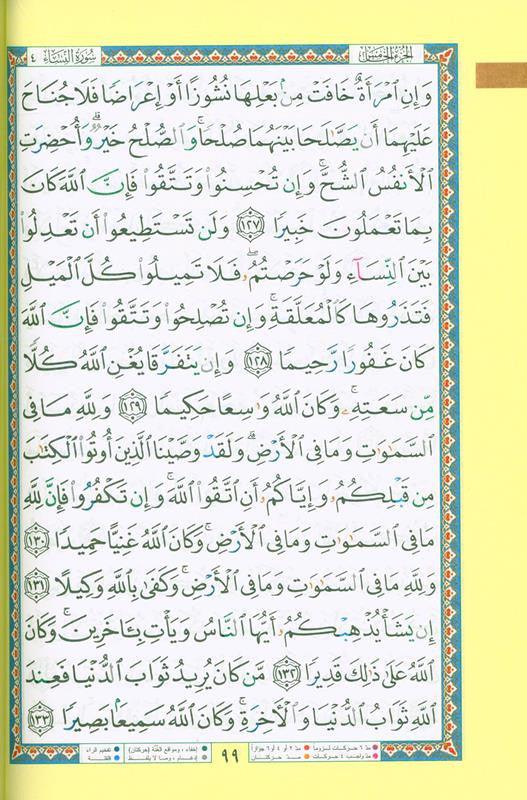 الجزء الخامس سورة النساء ٤
وَإِنِ امْرَأَةٌ خَافَتْ مِنۢ بَعْلِهَا نُشُوزًا أَوْ إِعْرَاضًا فَلَا جُنَاحَ
عَلَيْهِمَا أَن يَصَّٰلَحَا بَيْنَهُمَا صُلْحًاۚ وَالصُّلْحُ خَيْرٌۗ وَأُحْضِرَتِ
الْأَنفُسُ الشُّحَّۚ وَإِن تُحْسِنُوا وَتَتَّقُوا فَإِنَّ اللَّهَ كَانَ
بِمَا تَعْمَلُونَ خَبِيرًا ١٢٧ وَلَن تَسْتَطِيعُوا أَن تَعْدِلُوا
بَيْنَ النِّسَآءِ وَلَوْ حَرَصْتُمْۖ فَلَا تَمِيلُوا كُلَّ الْمَيْلِ
فَتَذَرُوهَا كَالْمُعَلَّقَةِۚ وَإِن تُصْلِحُوا وَتَتَّقُوا فَإِنَّ اللَّهَ
كَانَ غَفُورًا رَّحِيمًا ١٢٨ وَإِن يَتَفَرَّقَا يُغْنِ اللَّهُ كُلًّا
مِّن سَعَتِهِۦۚ وَكَانَ اللَّهُ وَٰسِعًا حَكِيمًا ١٢٩ وَلِلَّهِ مَا فِي
السَّمَٰوَٰتِ وَمَا فِي الْأَرْضِۗ وَلَقَدْ وَصَّيْنَا الَّذِينَ أُوتُوا الْكِتَٰبَ
مِن قَبْلِكُمُۥ وَإِيَّاكُمُۥ أَنِ اتَّقُوا اللَّهَۚ وَإِن تَكْفُرُوا فَإِنَّ لِلَّهِ
مَا فِي السَّمَٰوَٰتِ وَمَا فِي الْأَرْضِۚ وَكَانَ اللَّهُ غَنِيًّا حَمِيدًا ١٣٠
وَلِلَّهِ مَا فِي السَّمَٰوَٰتِ وَمَا فِي الْأَرْضِۚ وَكَفَىٰ بِاللَّهِ وَكِيلًا ١٣١
إِن يَشَأْ يُذْهِبْكُمُۥ أَيُّهَا النَّاسُ وَيَأْتِ بِـَٔاخَرِينَۚ وَكَانَ
اللَّهُ عَلَىٰ ذَٰلِكَ قَدِيرًا ١٣٢ مَّن كَانَ يُرِيدُ ثَوَابَ الدُّنْيَا فَعِندَ
اللَّهِ ثَوَابُ الدُّنْيَا وَالْأَخِرَةِۚ وَكَانَ اللَّهُ سَمِيعًا بَصِيرًا ١٣٣
مد ٦ حركات لزوماً مد ٢ أو ٤ أو ٦ جوازاً إخفاء، ومواقع الغُنَّة (حركتان) تفخيم الراء
مد واجب ٤ حركات مد حركتان ٩٩ إدغام، وما لا يُلفَظ